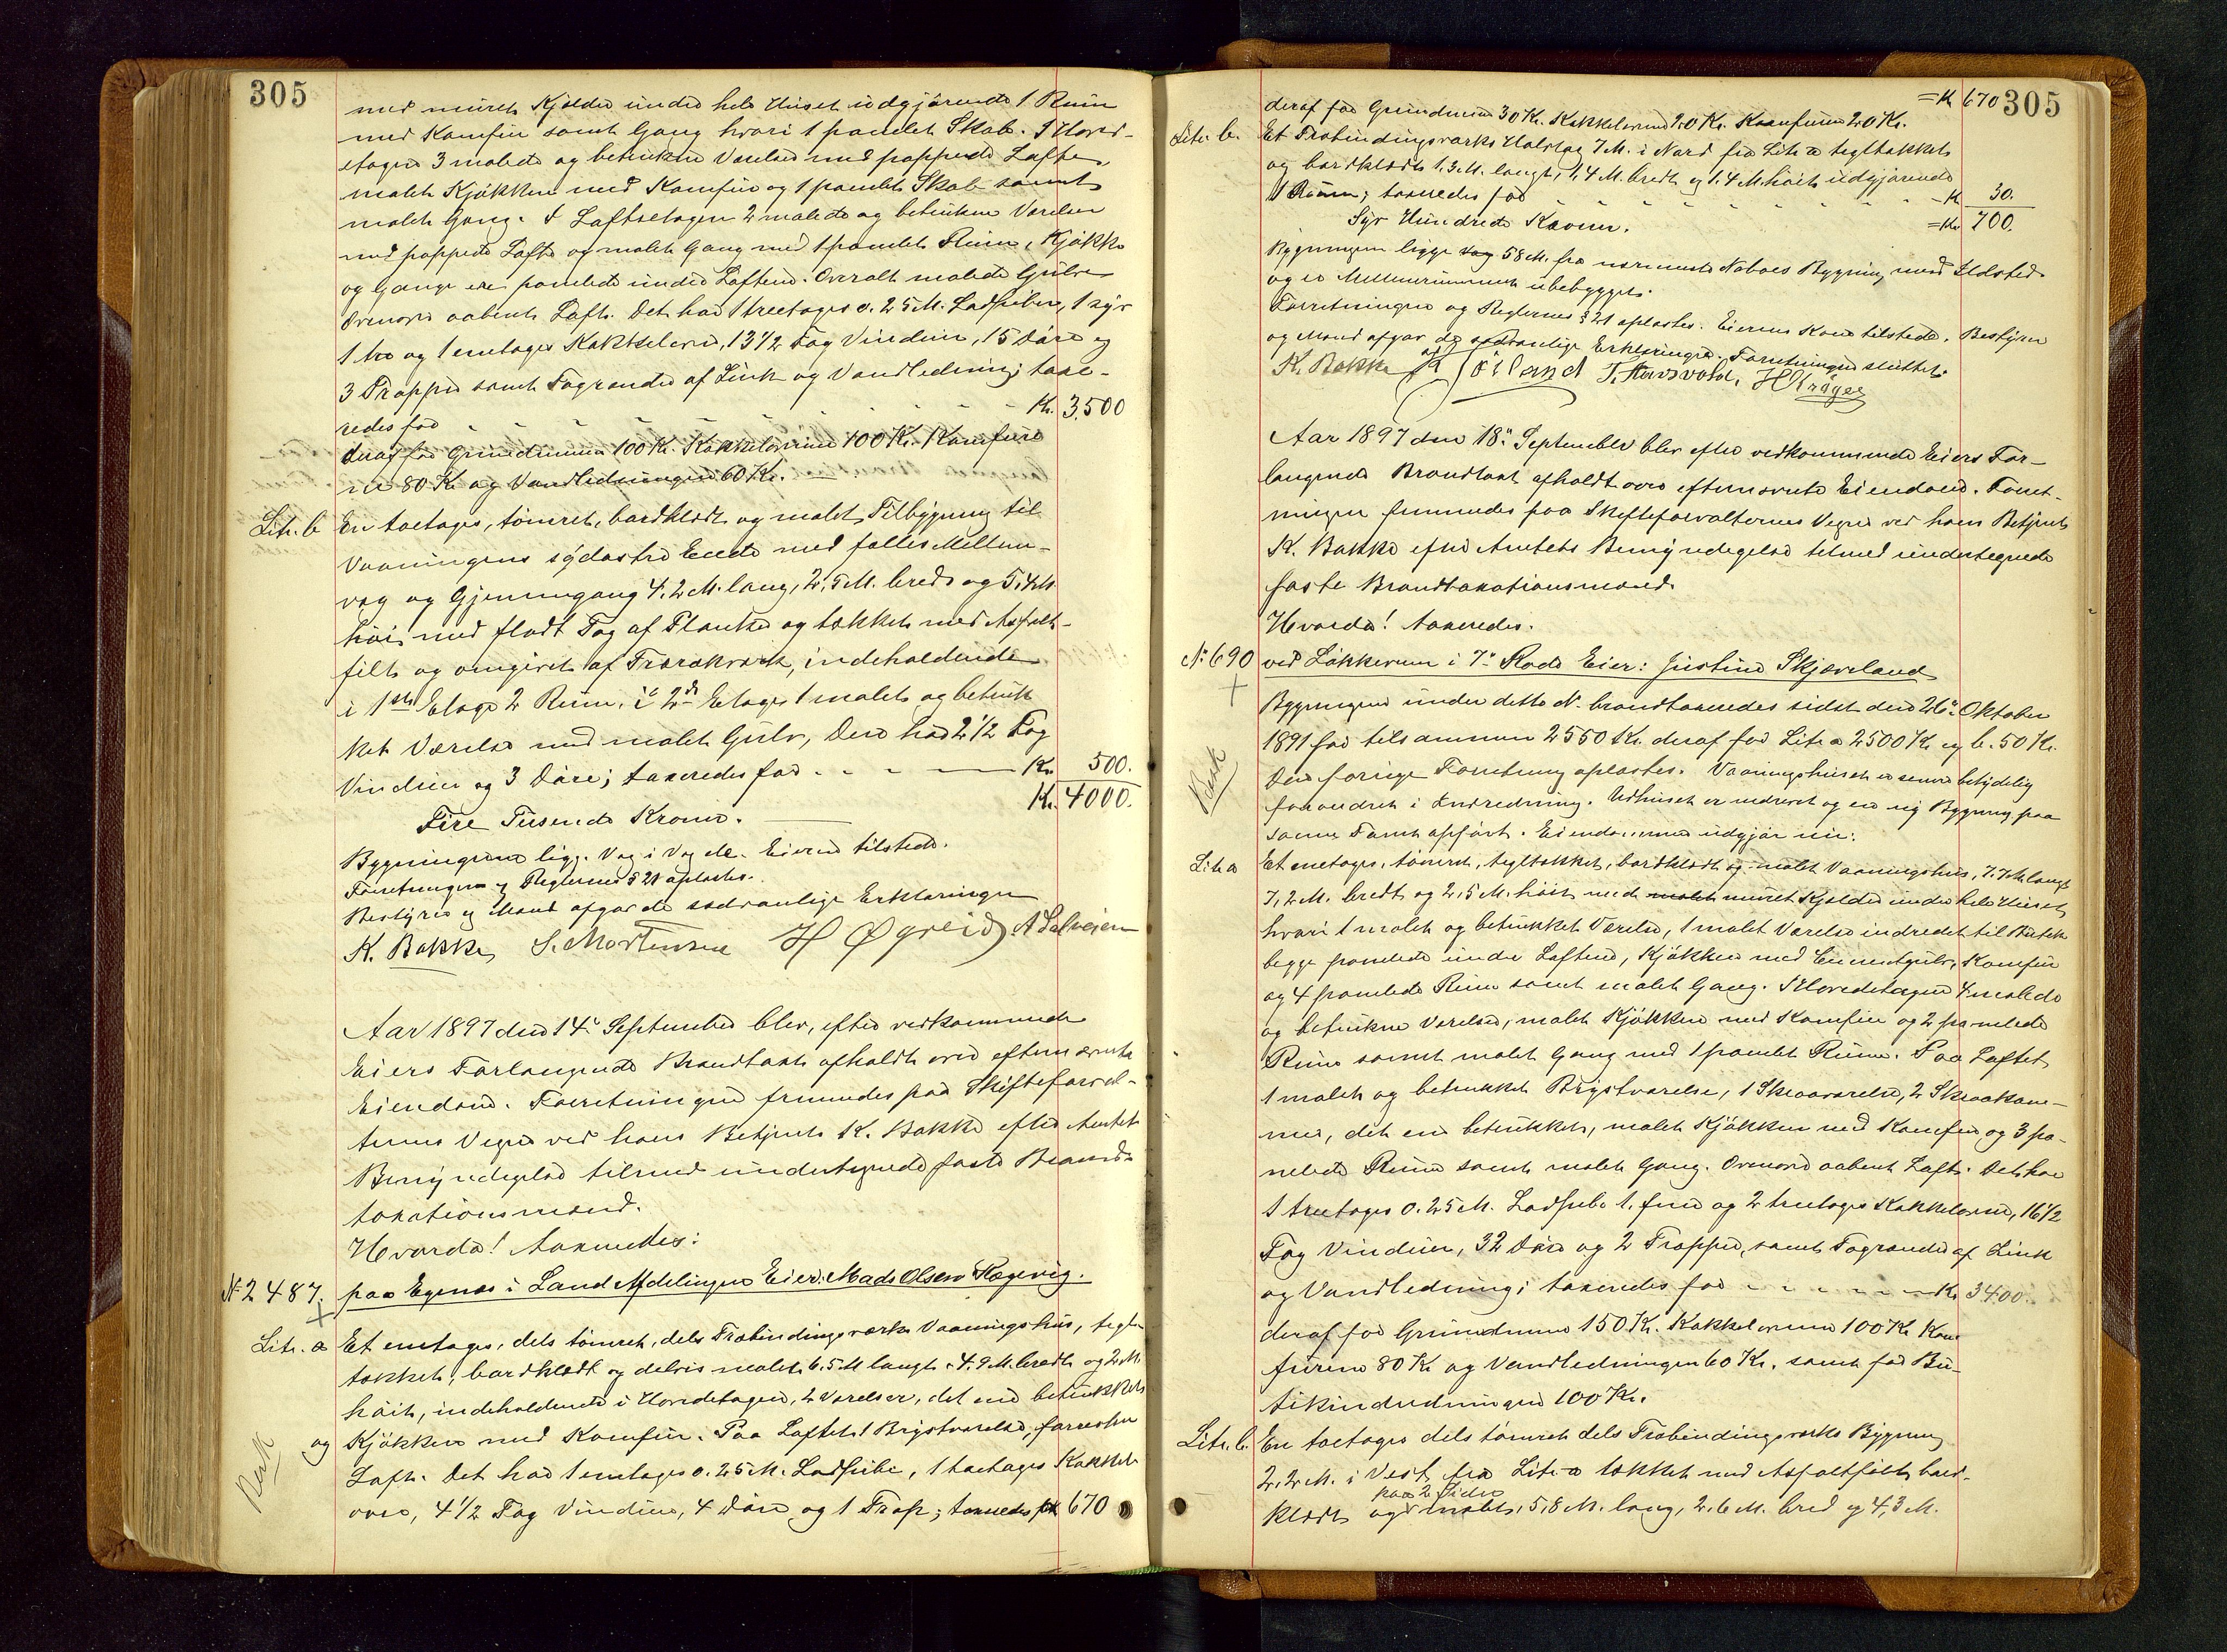 305
med muret Kjelder under hele Huset udgjørende 1 Rum
med Komfur samt Gang hvori 1 panelet Skab. I Hoved-
etagen 3 malede og betrukne Værelser med pappede Lofter,
malet Kjøkken med Komfur og 1 panelet Skab samt
malet Gang. I Loftsetagen 2 malede og betrukne Værelser
med pappede Lofte og malet Gang med 1 panelet Rum, Kjøkken
og Gange ere panelede under Loftene. Overalt malede Gulve
Ovenover aabent Loft. Det har 1 treetages o. 25 M. Ladpiber, 1 ny
1 tre og 1 eenetages Kakkelovne, 13 1/2 Fag Vinduer, 15 Døre og
3 Trapper samt Tagrender af Zink og Vandledning; taxe-
redes for - - - - - Kr. 3.500
deraf for Grundmuren 100 Kr. Kakkelovnene 100 Kr. Komfure-
ne 80 Kr. og Vandledningen 60 Kr.
Litr. b En toetages, tømret, bordklædt og malet Tilbygning til
Vaaningens sydøstre Ende med fælles Mellem-
væg og Gjennemgang 4.2 M. lang, 2.5 M. bred og 5.4 M.
høi med fladt Tag af Planker og tækket med Asfalt-
filt og omgivet af Trærækværk, indeholdende
i 1ste Etage 2 Rum, i 2den Etage 1 malet og betruk-
ket Værelse med malet Gulv, Den har 2 1/2 Fag
Vinduer og 3 Døre; taxeredes for - - - Kr. 500.
Fire Tusende Kroner. Kr. 4000.
Bygningerne ligg. Væg i Væg de. Eieren tilstede.
Forretningen og Reglernes § 21 oplæstes.
Bestyrer og Mænd afgav de sædvanlige Erklæringer
K. Bakke S. Mortensen H Øgreid A Salvesen
Aar 1897 den 14' September blev, efter vedkommende
Eiers Forlangende Brandtaxt afholdt over efternævnte
Eiendom. Forretningen fremmedes paa Skifteforval-
terens Vegne ved hans Betjent K. Bakke efter Amtets
Bemyndigelse tilmed undertegnede faste Brand-
taxationsmænd.
Hvorda! taxeredes:
No 2487. paa Egenæs i Land Afdelingen Eier: Mads Olsen Hægevig.
Litr. a Et enetages, dels tømret, dels Træbindingsværks Vaaningshus, tegl-
tækket, bordklædt og delvis malet 6.5 M langt, 4.9 M. bredt og 2 M.
høit, indeholdende i Hovedetagen, 2 Værelser, det ene betrukket
og Kjøkken med Komfur. Paa Loftet 1 Brystværelse, forresten
Loft. Det har 1 enetages o. 25 M. Ladpibe, 1 toetages Kakkel-
ovn, 4 1/2 Fag Vinduer, 4 Døre og 1 Trap; taxeredes for 670
Besk
= Kr 670 305
deraf for Grundmuren 30 Kr. Kakkelovnen 20 Kr. Komfuren 20 Kr.
Litr. b. Et Træbindingsværks Udslag 7 M. i Nord fra Litr. a tegltækket
og bordklædt 1,3 M. langt, 1,4 M. bredt og 1,4 M. høit udgjørende
1 Rum; taxeredes for - - - Kr 30.
Syv Hundrede Kroner. = Kr 700.
Bygningen ligge 58 M. fra nærmeste Naboes Bygning med Ildsted
og er Mellemrummet ubebygget.
Forretningen og Reglernes § 21 oplæstes. Eierens Kone tilstede. Bestyrer
og Mænd afgav de sædvanlige Erklæringer. Forretningen sluttet.
K. Bakke Höiland T. Hausvold. H Krøger
Aar 1897 den 18' September blev efter vedkommende Eiers For-
langende Brandtaxt afholdt over efternævnte Eiendom. Forret-
ningen fremmedes paa Skifteforvalterens Vegne ved hans Betjent
K. Bakke efter Amtets Bemyndigelse tilmed undertegnede
faste Brandtaxationsmænd.
Hvorda! taxeredes.
No 690 ved Løkkeveien i 7' Rode Eier: Justine Skjæveland
Bygningen under dette No. brandtaxeredes sidst den 26' Oktober
1891 for tilsammen 2550 Kr. deraf for Litr. a 2500 Kr. og b. 50 Kr.
Den forrige Forretning oplæstes. Vaaningshuset er senere betydelig
forandret i Indredning. Udhuset er nedrevet og en ny Bygning paa
samme Tomt opført. Eiendommen udgjør nu:
Besk
Litr a Et enetages, tømret, tegltækket, bordklædt og malet Vaaningshus, 7.7 M. langt
7,2 M. bredt og 2,5 M. høit med malet muret Kjelder under hele Huset
hvori 1 malet og betrukket Værelse, 1 malet Værelse indredet til Butik
begge panelede under Loftene, Kjøkken med Cementgulv, Komfur
og 4 panelede Rum samt malet Gang. I Hovedetagen 4 malede
og betrukne Værelser, malet Kjøkken med Komfur og 2 panelede
Rum samt malet Gang med 1 panelet Rum. Paa Loftet
1 malet og betrukket Brystværelse, 1 Skraaværelse, 2 Skraakam-
mer, det ene betrukket, malet Kjøkken med Komfur og 3 pa-
nelede Rum samt malet Gang. Ovenover aabent Loft. Det har
1 treetages o. 25 M. Ladpibe 1. fire og 2 treetages Kakkelovne, 16 1/2
Fag Vinduer, 32 Døre og 2 Trapper, samt Tagrender af Zink
og Vandledning; taxeredes for - - - - - Kr. 3400.
deraf for Grundmuren 150 Kr. Kakkelovnene 100 Kr Kom-
furene 80 Kr og Vandledningen 60 Kr. samt for Bu-
tikindredningen 100 Kr.
Litr. b. En toetages dels tømret dels Træbindingsværks Bygning
2,2 M. i Vest fra Litr. a tækket med Asfaltfilt, bord-
paa 2 Sider
klædt og malet, 5,8 M. lang, 2.6 M. bred og 4,3 M.